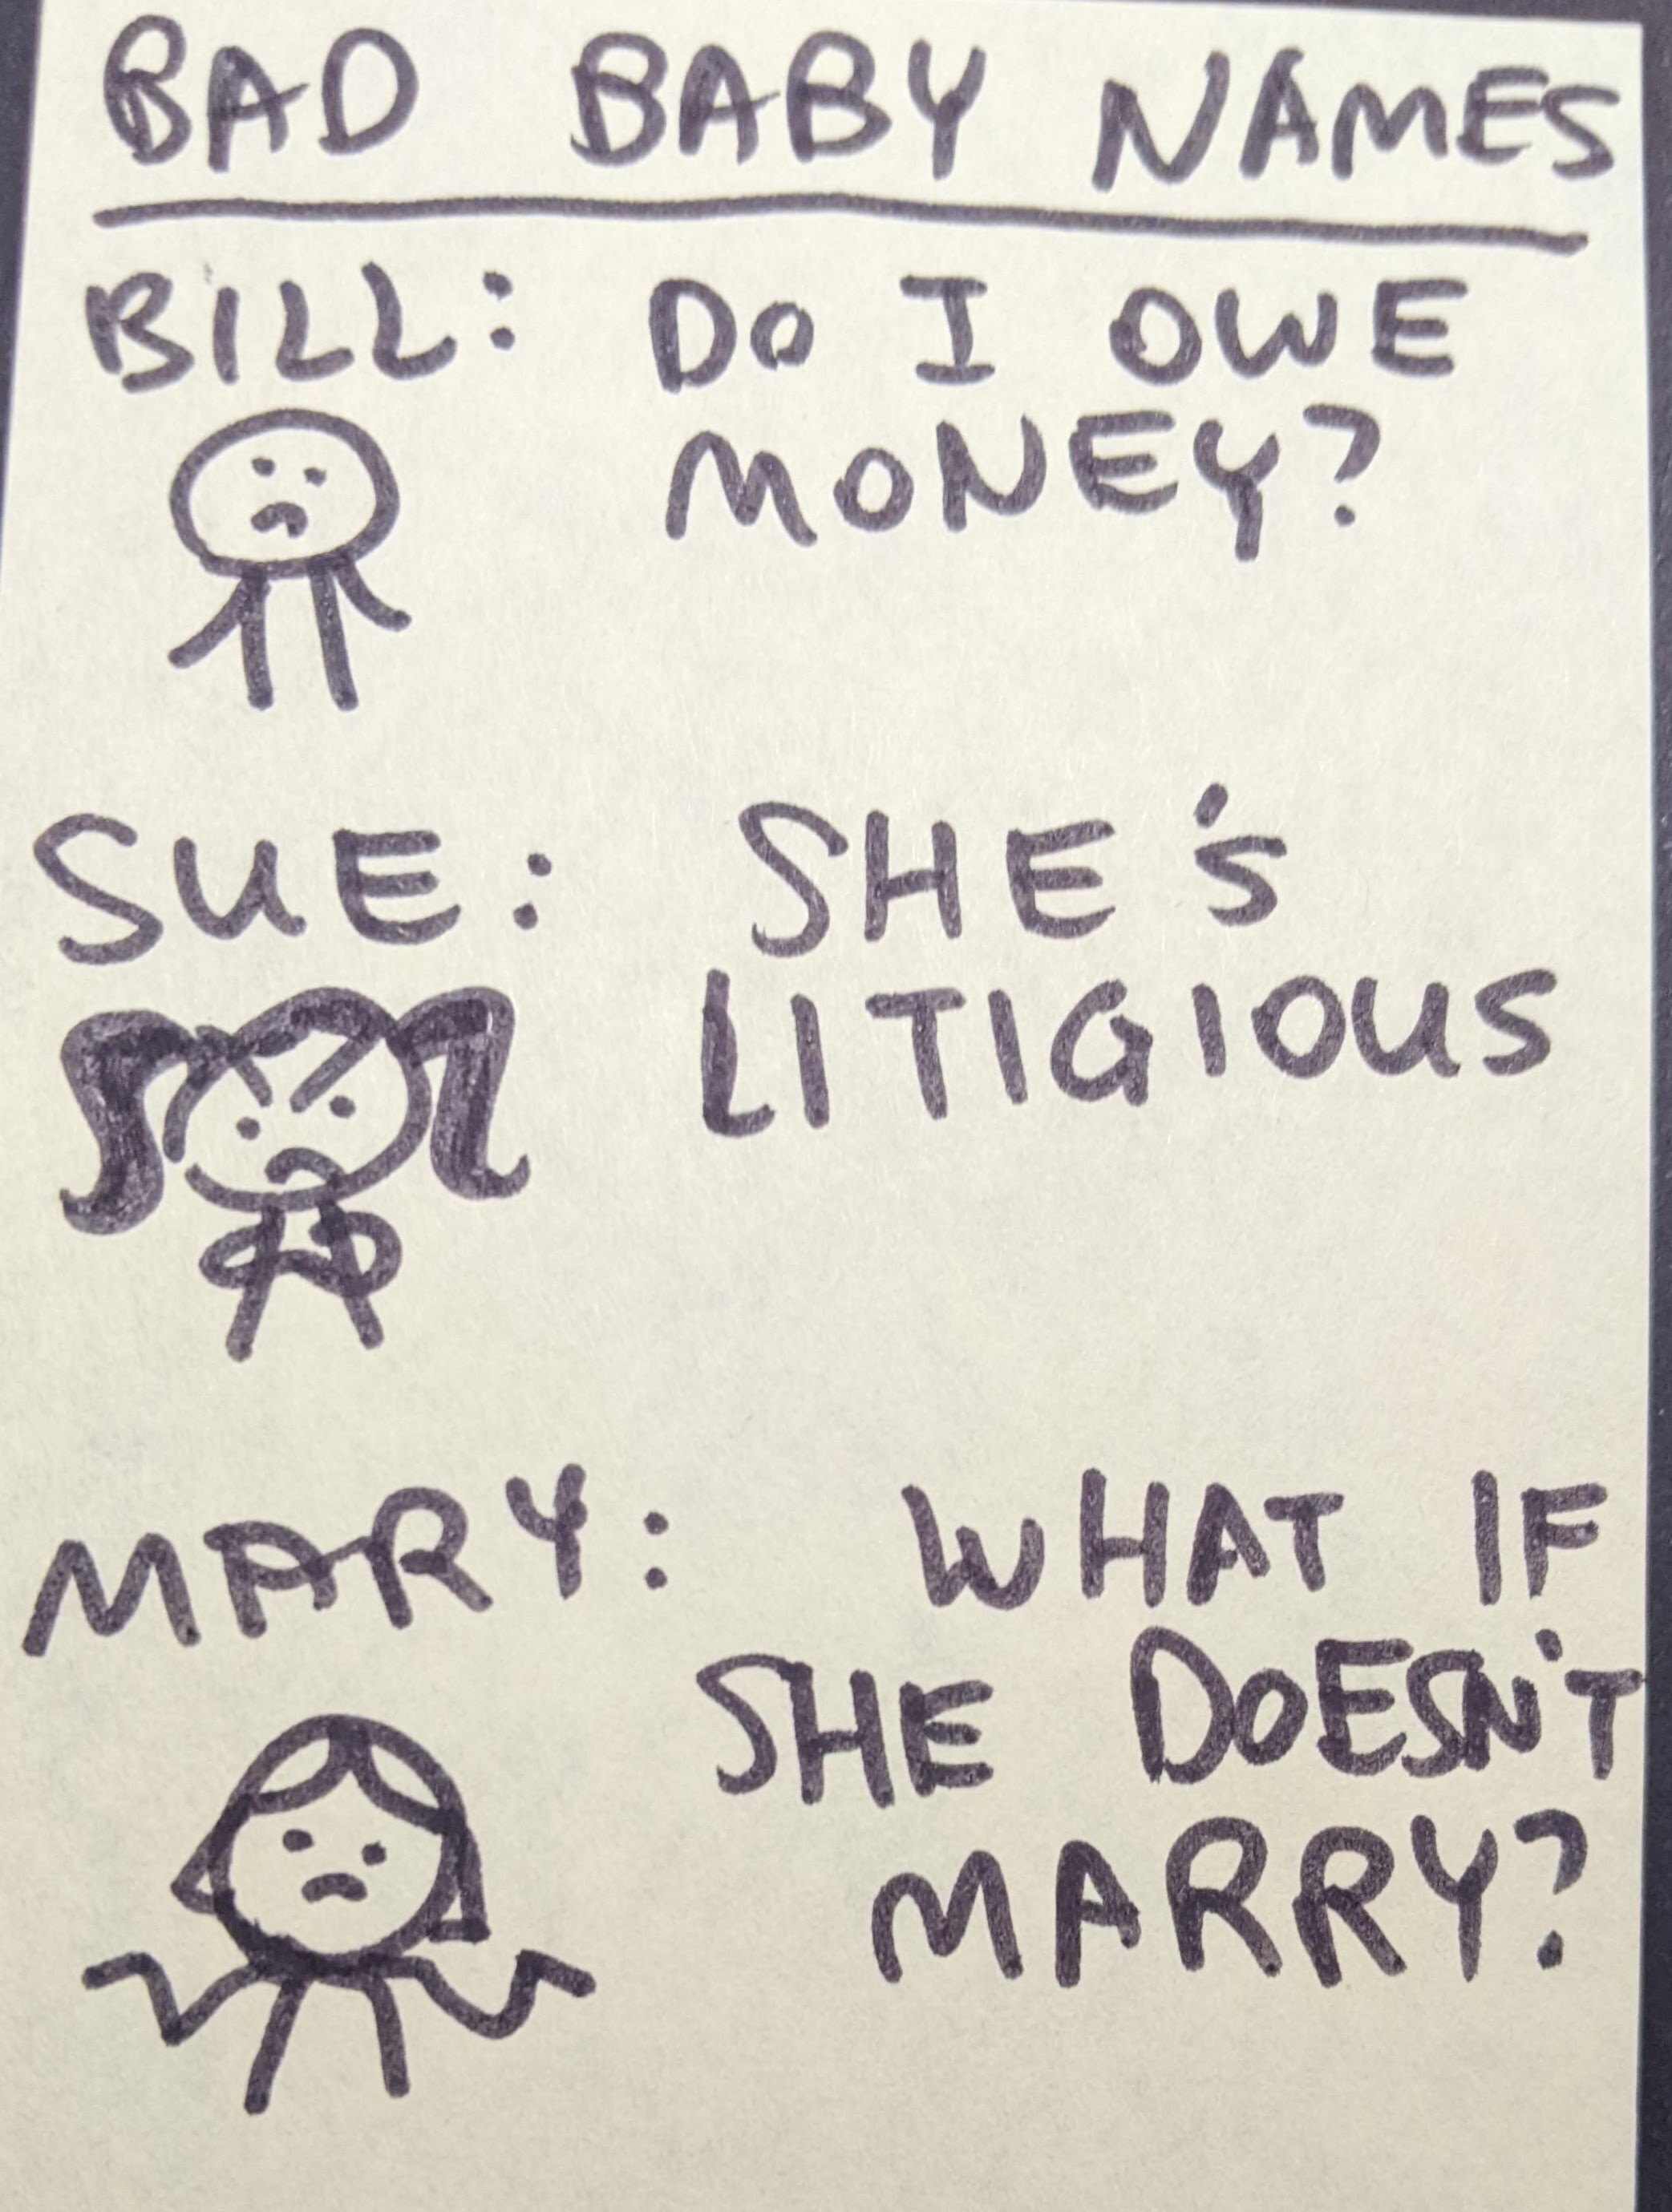 BAD BABY NAMES
BILL: DO I OWE
MONEY?
SUE: SHE'S
LITIGIOUS
MARY: WHAT IF
SHE DOESN'T
MARRY?